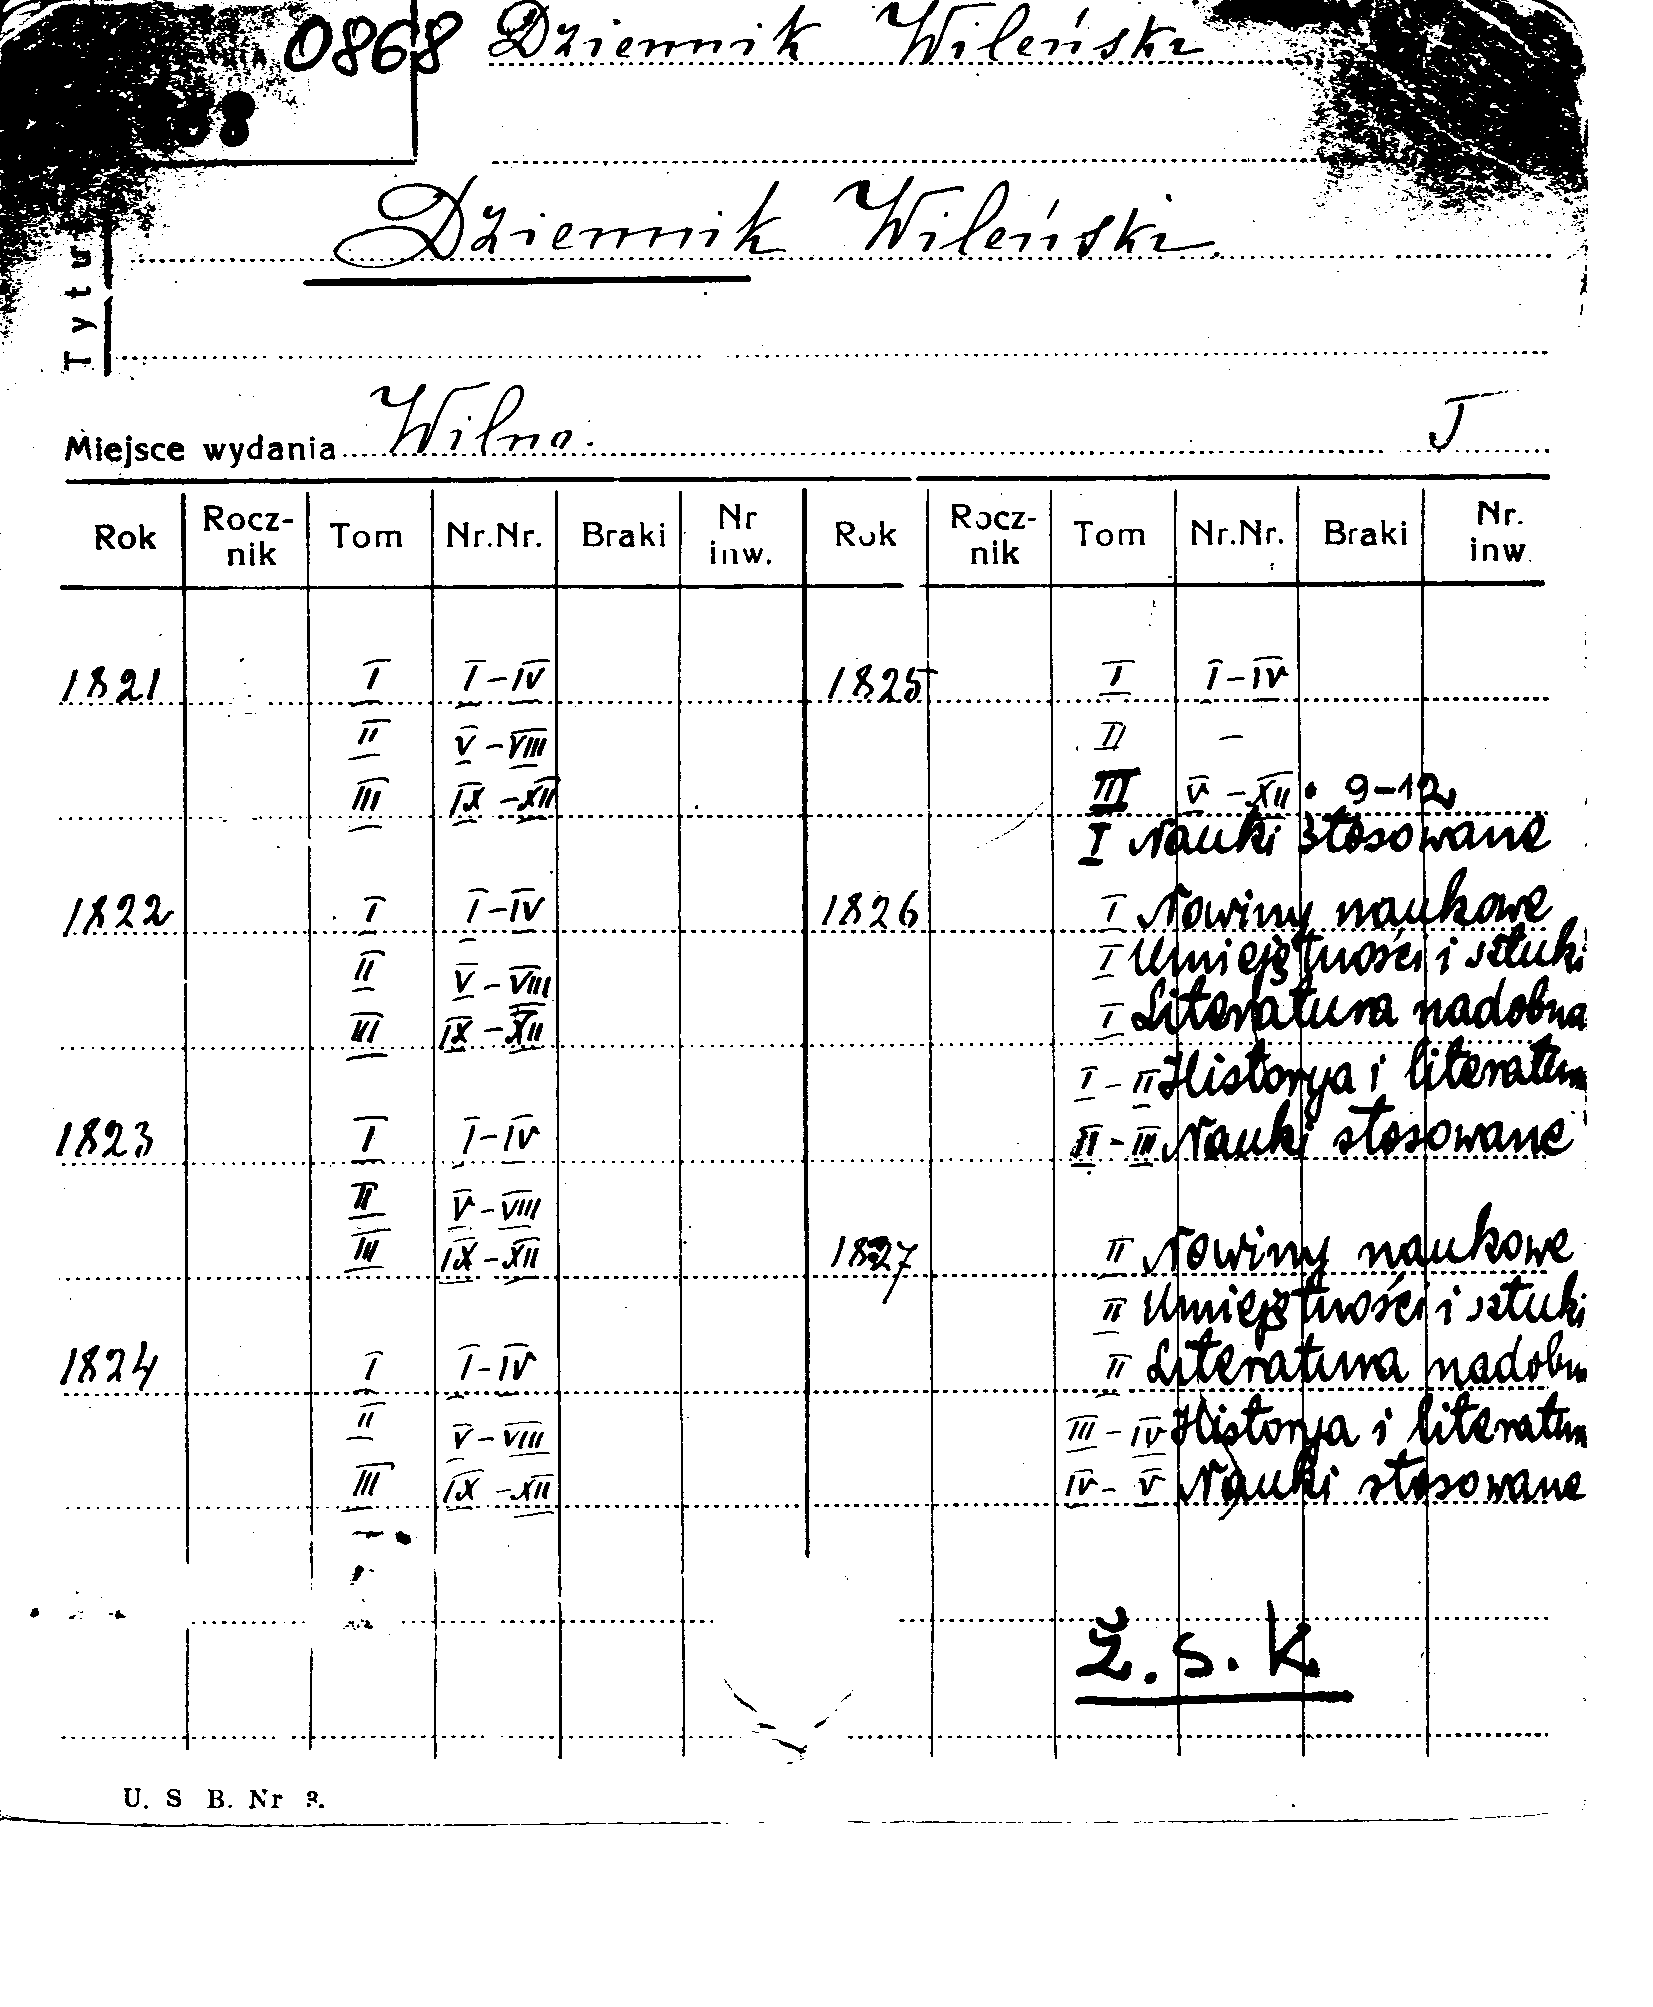 0868 Dziennik Wileński
Dziennik Wileński.
Tytuł
Miejsce wydania Wilno. J
Rok Rocz-nik Tom Nr.Nr. Braki Nr inw. Rok Rocz-nik Tom Nr.Nr. Braki Nr. inw.
1821 I I-IV 1825 I I-IV
II V-VIII II -
III IX-XII III V-XII. 9-12
I Nauki stosowane
1822 I I-IV 1826 I Nowiny naukowe
II V-VIII I Umiejętności i sztuki
III IX-XII I Literatura nadobna
I-II Historya i literatura
1823 I I-IV II-III Nauki stosowane
II V-VIII
III IX-XII 1827 II Nowiny naukowe
II Umiejętności i sztuki
1824 I I-IV II Literatura nadobna
II V-VIII III-IV Historya i literatura
III IX-XII IV-V Nauki stosowane
Ž.S.K.
U. S B. Nr 3.